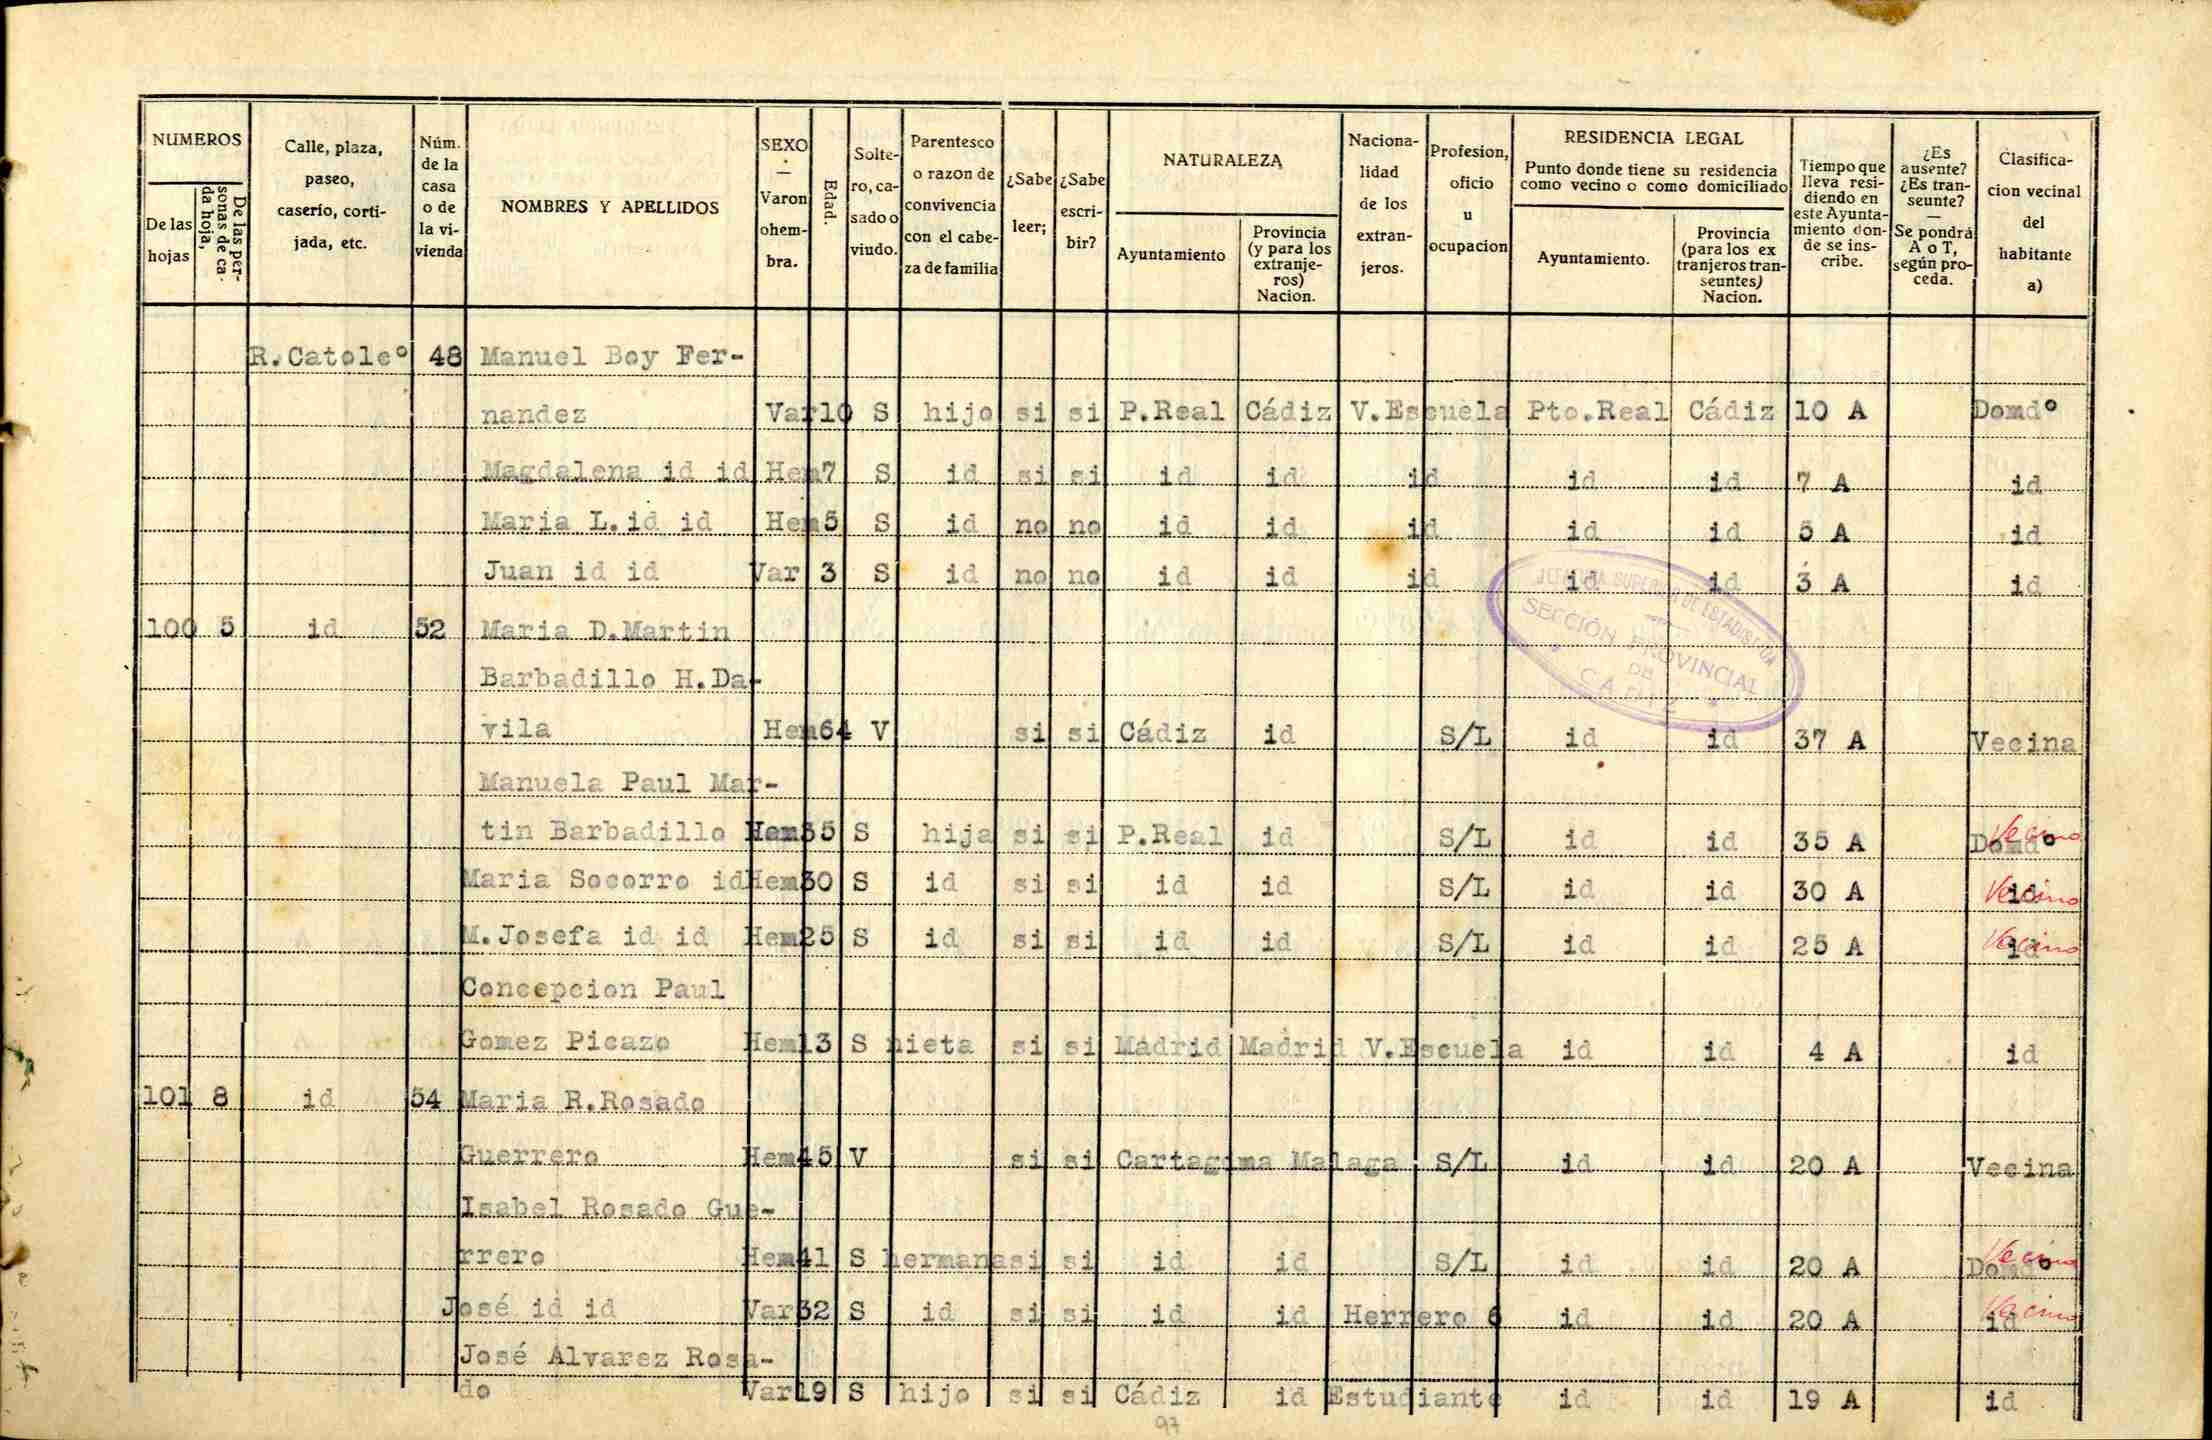 NUMEROS
De las hojas
De las personas de cada hoja,
Calle, plaza, paseo, caserio, cortijada, etc.
Núm. de la casa o de la vivienda
NOMBRES Y APELLIDOS
SEXO — Varon ohembra.
Edad.
Soltero, casado o viudo.
Parentesco o razon de convivencia con el cabeza de familia
¿Sabe leer;
¿Sabe escribir?
NATURALEZA
Ayuntamiento
Provincia (y para los extranjeros) Nacion.
Nacionalidad de los extranjeros.
Profesion, oficio u ocupacion
RESIDENCIA LEGAL
Punto donde tiene su residencia como vecino o como domiciliado
Ayuntamiento.
Provincia (para los ex tranjeros transeuntes) Nacion.
Tiempo que lleva residiendo en este Ayuntamiento donde se inscribe.
¿Es ausente? ¿Es transeunte? — Se pondrá A o T, según proceda.
Clasificacion vecinal del habitante a)
R.Catoleº 48 Manuel Boy Fer-
nandez Var 10 S hijo si si P.Real Cádiz V.Escuela Pto.Real Cádiz 10 A Domdº
Magdalena id id Hem 7 S id si si id id id id id 7 A id
Maria L.id id Hem 5 S id no no id id id id id 5 A id
Juan id id Var 3 S id no no id id id id id 3 A id
JEFATURA SUPERIOR DE ESTADISTICA
SECCIÓN PROVINCIAL
DE
CADIZ
100 5 id 52 Maria D.Martin
Barbadillo H.Da-
vila Hem 64 V si si Cádiz id S/L id id 37 A Vecina
Manuela Paul Mar-
tin Barbadillo Hem 35 S hija si si P.Real id S/L id id 35 A Domdº Vecino
Maria Socorro id Hem 30 S id si si id id S/L id id 30 A id Vecino
M.Josefa id id Hem 25 S id si si id id S/L id id 25 A id Vecino
Concepcion Paul
Gomez Picazo Hem 13 S nieta si si Madrid Madrid V.Escuela id id 4 A id
101 8 id 54 Maria R.Rosado
Guerrero Hem 45 V si si Cartagima Malaga S/L id id 20 A Vecina
Isabel Rosado Gue-
rrero Hem 41 S hermana si si id id S/L id id 20 A Domdº Vecino
José id id Var 32 S id si si id id Herrero 6 id id 20 A id Vecino
José Alvarez Rosa-
do Var 19 S hijo si si Cádiz id Estudiante id id 19 A id
97